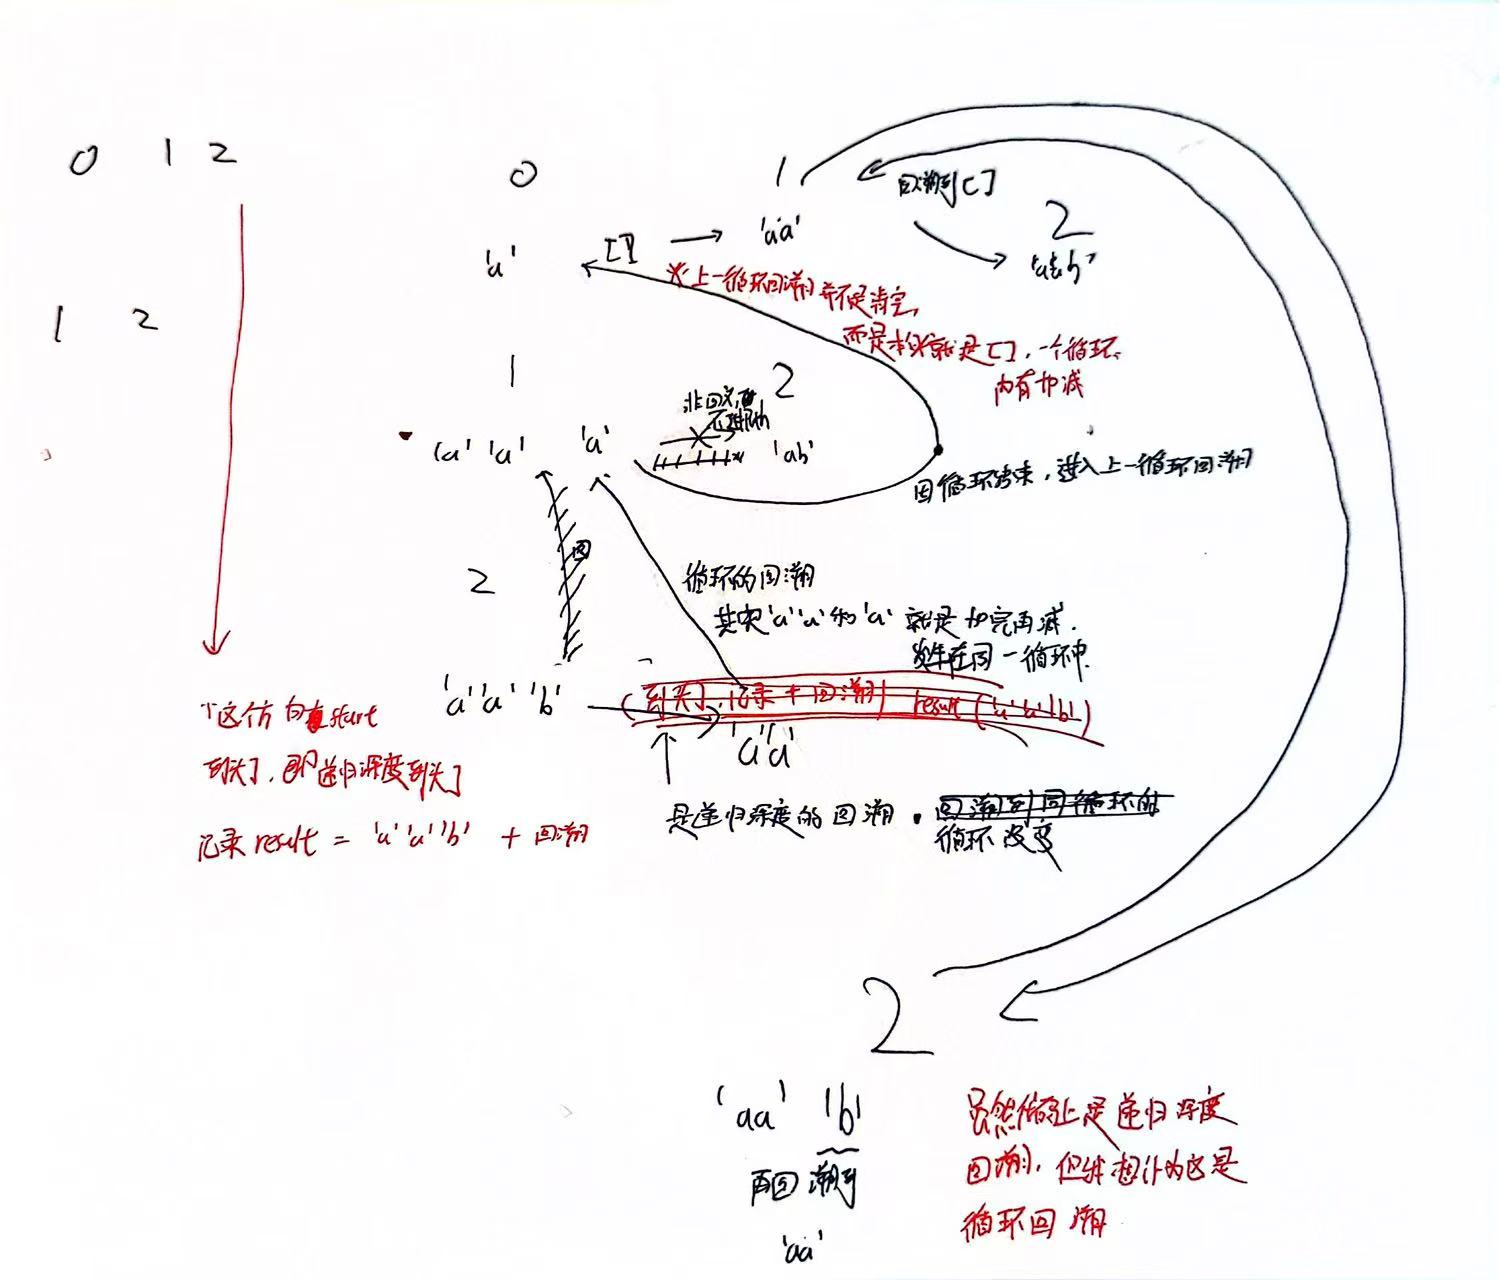 0 1 2
0
1
回溯到[]
2
'a'
[]
'aa'
'aab'
※上一循环回溯并不是清空,
而是本来就是[],一个循环
内有加减
1 2
1
2
非回文,
'a' 'a'
'a'
'ab'
因循环结束,进入上一循环回溯
2
回
循环的回溯
其实'a''a'和'a' 就是加完再减.
发生在同一循环中.
'a''a''b'
(到头了,记录+回溯) result('a''a''b')
'a''a'
↑这个方向是start
到头了,即递归深度到头了
记录result = 'a''a''b' + 回溯
是递归深度的回溯.
回溯到同循环的
循环改变
2
'aa' 'b'
再回溯到
'aa'
虽然编码上是递归深度
回溯,但我想认为这是
循环回溯